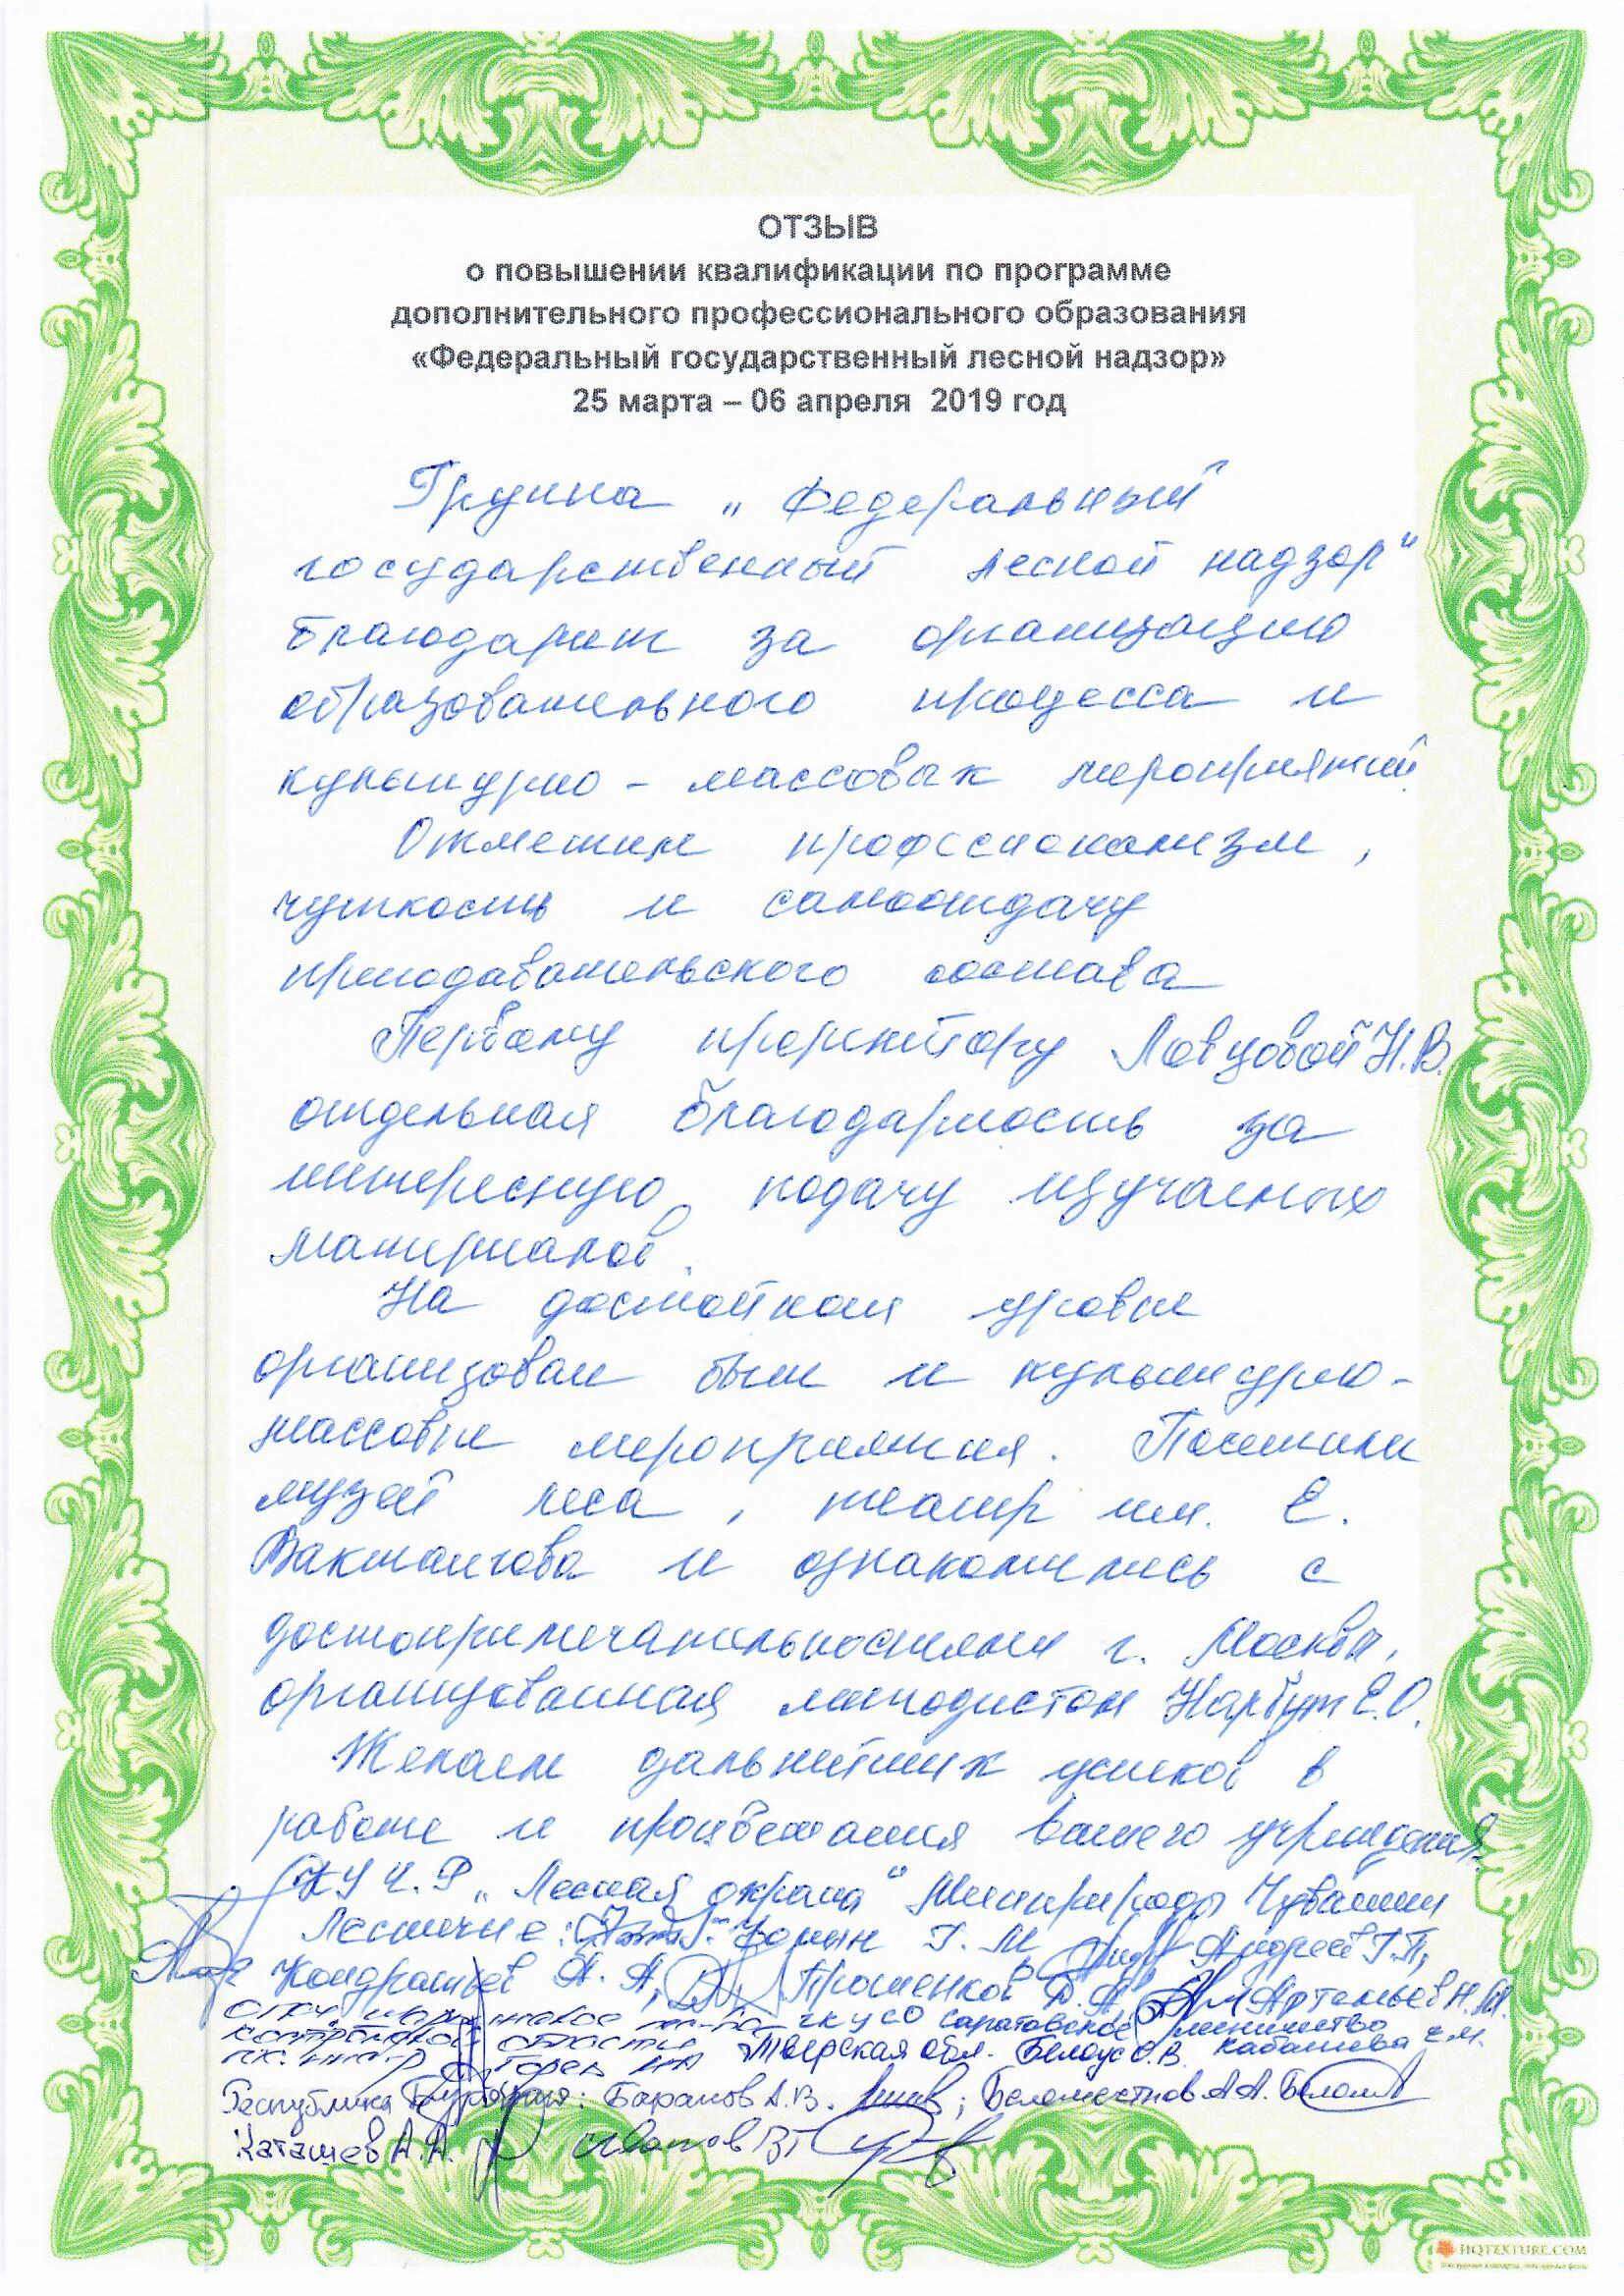 ОТЗЫВ
о повышении квалификации по программе
дополнительного профессионального образования
«Федеральный государственный лесной надзор»
25 марта – 06 апреля 2019 год
Группа „Федеральный
государственный лесной надзор“
благодарит за организацию
образовательного процесса и
культурно - массовых мероприятий.
Отметим профессионализм,
чуткость и самоотдачу
преподавательского состава
Первому проректору Ловцовой Н.В.
отдельная благодарность за
интересную подачу изучаемых
материалов.
На достойном уровне
организован были и культурно-
массовые мероприятия. Посетили
музей леса, театр им. Е.
Вахтангова и ознакомились с
достопримечательностями г. Москвы,
организованная методистом Нарбут Е.О.
Желаем дальнейших успехов в
работе и процветания вашего учреждения.
КУ Ч.Р „Лесная охрана“ Минприроды Чувашии
Лесничие: Г.М Андреев Г.П,
Кондратьев А. А, Прошенков Д.А, Артемьев Н.М.
ГКУ СО Саратовское лесничество
области Тверская обл. Белоус О.В. Кабашева Е.М.
Республика Бурятия: Баранов А.В. ; Беломестнов А А.
Каташев А.А. Иванов В Г
HQTEXTURE.COM